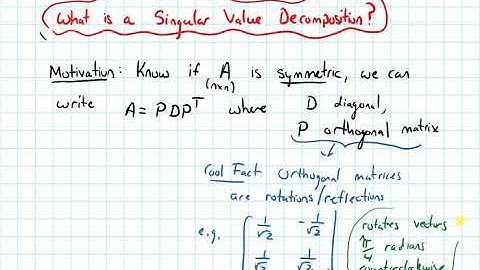 What is a Singular Value Decomposition?
Motivation: Know if A is symmetric, we can
(n×n)
write A = PDPᵀ where D diagonal,
P orthogonal matrix
Cool Fact: Orthogonal matrices
are rotations/reflections
e.g. 1/√2 -1/√2
1/√2 1/√2
rotates vectors
π/4 radians
counterclockwise